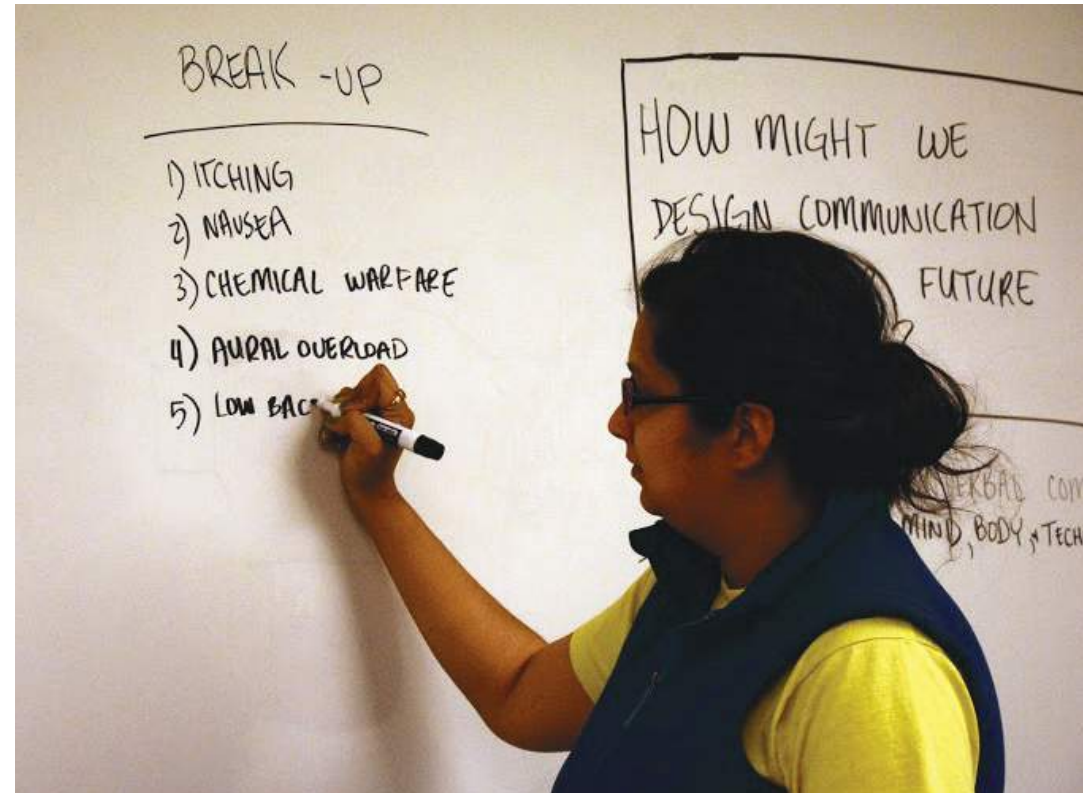 BREAK -UP
1) ITCHING
2) NAUSEA
3) CHEMICAL WARFARE
4) AURAL OVERLOAD
5) LOW
HOW MIGHT WE
DESIGN COMMUNICATION
FUTURE
MIND, BODY, + TECH